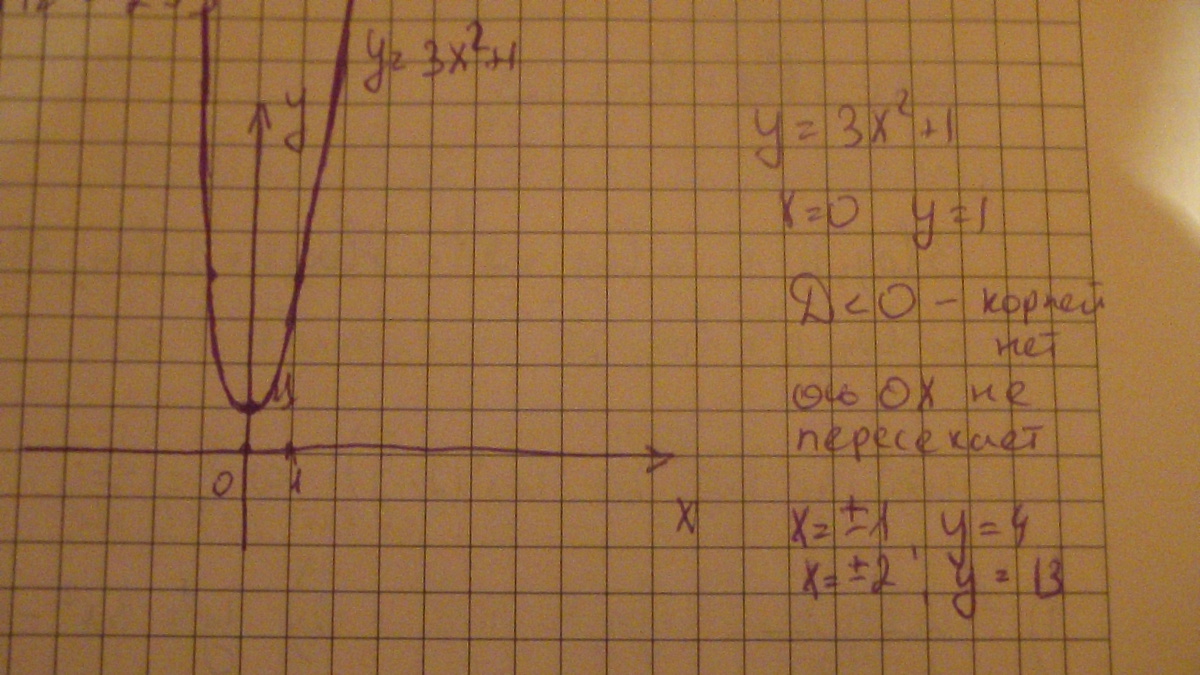 y = 3x²+1
y
1
0
1
x
y = 3x²+1
x=0 y=1
D<0 – корней
нет
ось OX не
пересекает
x=±1, y=4
x=±2, y=13